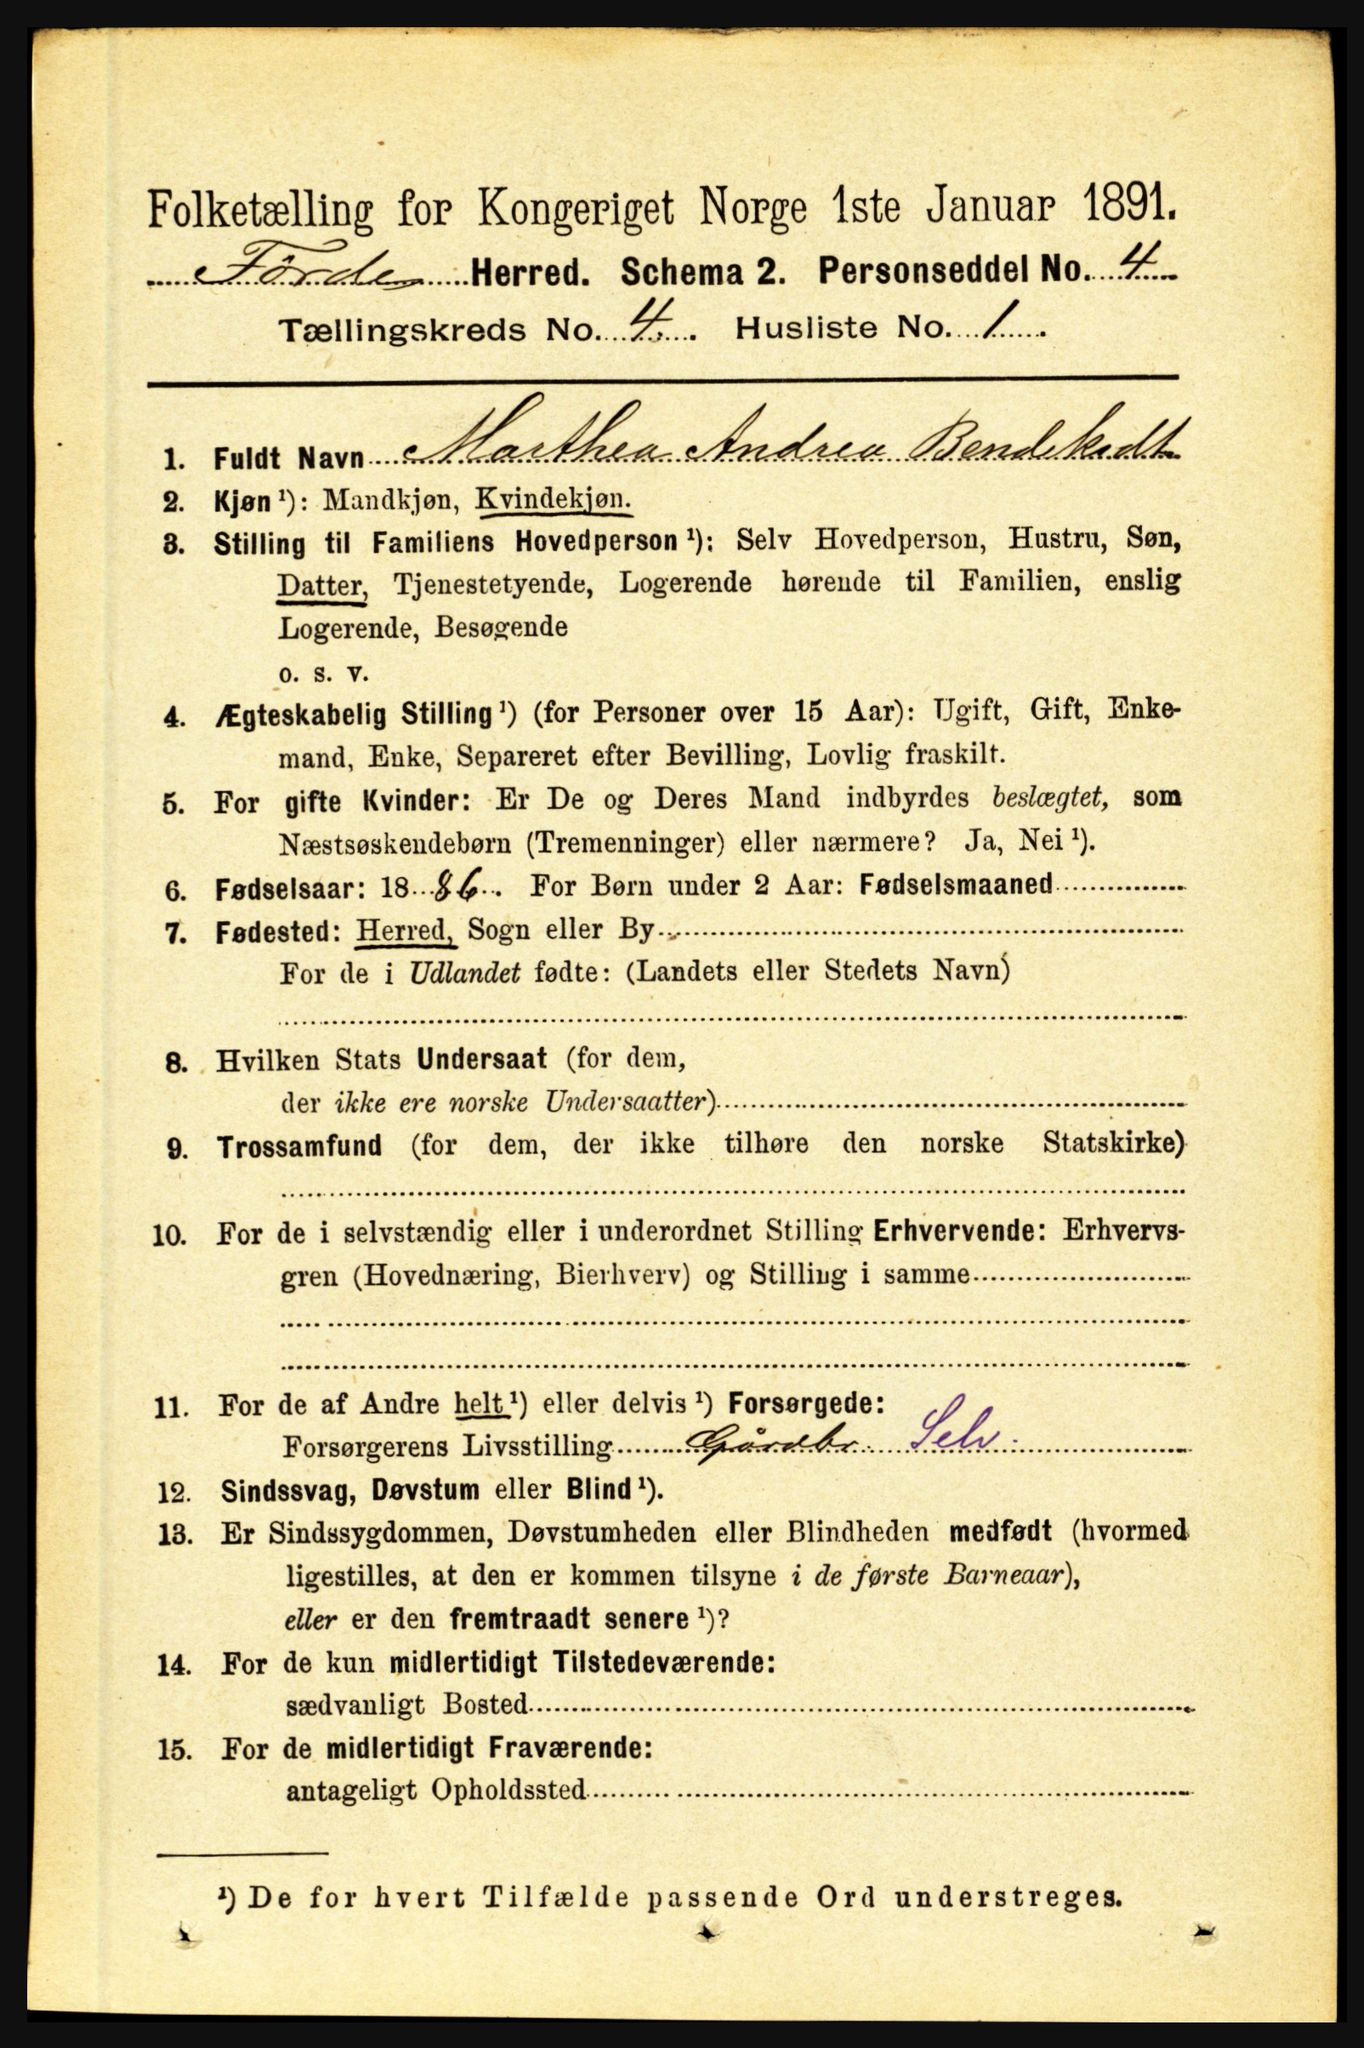 Folketælling for Kongeriget Norge 1ste Januar 1891.
Förde Herred. Schema 2. Personseddel No. 4
Tællingskreds No. 4. Husliste No. 1
1. Fuldt Navn Marthea Andrea Bendiksdt
2. Kjøn ¹): Mandkjøn, Kvindekjøn.
3. Stilling til Familiens Hovedperson ¹): Selv Hovedperson, Hustru, Søn,
Datter, Tjenestetyende, Logerende hørende til Familien, enslig
Logerende, Besøgende
o. s. v.
4. Ægteskabelig Stilling ¹) (for Personer over 15 Aar): Ugift, Gift, Enke-
mand, Enke, Separeret efter Bevilling, Lovlig fraskilt.
5. For gifte Kvinder: Er De og Deres Mand indbyrdes beslægtet, som
Næstsøskendebørn (Tremenninger) eller nærmere? Ja, Nei ¹).
6. Fødselsaar: 1886. For Børn under 2 Aar: Fødselsmaaned
7. Fødested: Herred, Sogn eller By
For de i Udlandet fødte: (Landets eller Stedets Navn)
8. Hvilken Stats Undersaat (for dem,
der ikke ere norske Undersaatter)
9. Trossamfund (for dem, der ikke tilhøre den norske Statskirke)
10. For de i selvstændig eller i underordnet Stilling Erhvervende: Erhvervs-
gren (Hovednæring, Bierhverv) og Stilling i samme
11. For de af Andre helt ¹) eller delvis ¹) Forsørgede:
Forsørgerens Livsstilling Gårdbr. Selv.
12. Sindssvag, Døvstum eller Blind ¹).
13. Er Sindssygdommen, Døvstumheden eller Blindheden medfødt (hvormed
ligestilles, at den er kommen tilsyne i de første Barneaar),
eller er den fremtraadt senere ¹)?
14. For de kun midlertidigt Tilstedeværende:
sædvanligt Bosted
15. For de midlertidigt Fraværende:
antageligt Opholdssted
¹) De for hvert Tilfælde passende Ord understreges.